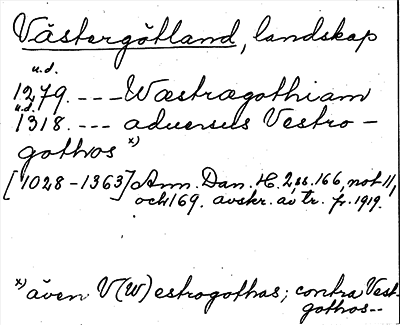 Västergötland, landskap
u.d.
1279. --- Wæstrægothiam
u.d.
1318. --- aduersus Vestro-
gothos x)
[1028-1363] Ann. Dan. H. 2, ss. 166, not 11,
och 169. avskr. av tr. fr. 1919.
x) även V(W)estrogothas; contra Vest-
gothos--